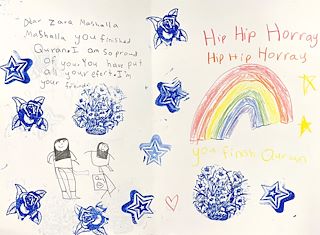 Dear Zara Mashalla
Mashalla you finished
Quran.I am so proud
of you.You have put
all your efert.I'm
your friend
Hip Hip Horray
Hip Hip Horray
you finish Quran